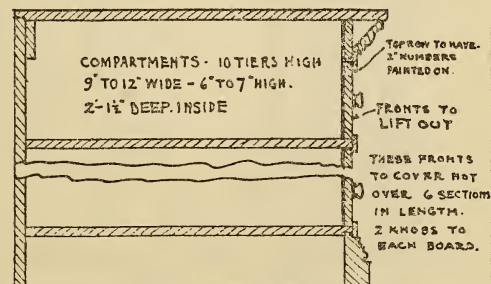 COMPARTMENTS - 10 TIERS HIGH
9" TO 12" WIDE - 6" TO 7" HIGH.
2'-1½" DEEP. INSIDE
TOP ROW TO HAVE.
2" NUMBERS
PAINTED ON.
FRONTS TO
LIFT OUT
THESE FRONTS
TO COVER NOT
OVER 6 SECTIONS
IN LENGTH.
2 KNOBS TO
EACH BOARD.